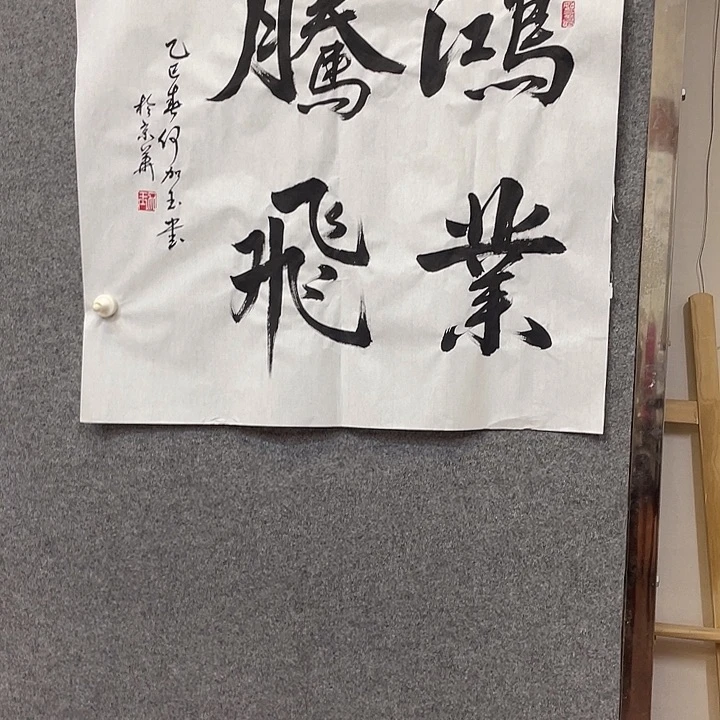 鴻業
騰飛
乙巳春何加玉書
於京華